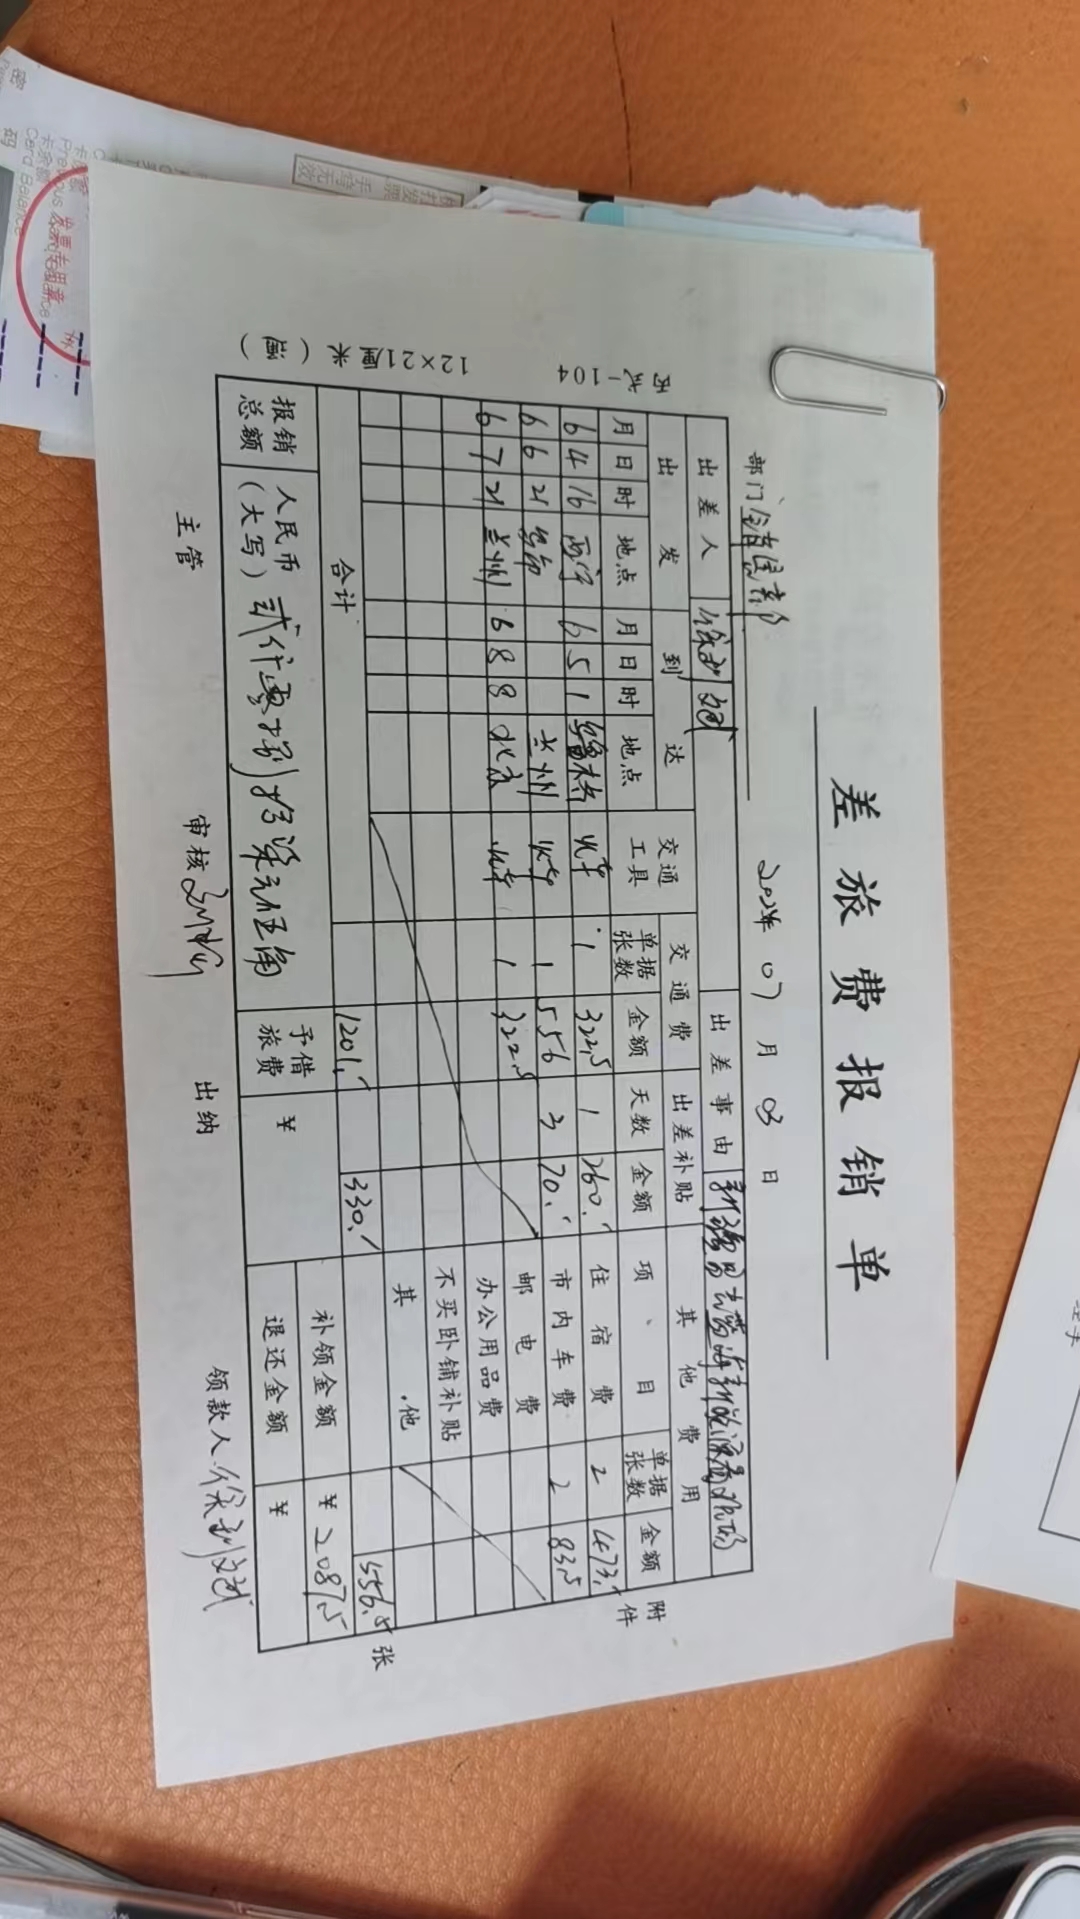 差旅费报销单
部门 销售部 2024年 07月 03日
出差人 徐利斌 出差事由
出发 到达 交通工具 交通费 出差补贴 其他费用
月 日 时 地点 月 日 时 地点 单据张数 金额 天数 金额 项、目 单据张数 金额
6 4 16 西宁 6 5 1 火车 1 322.5 1 260.- 住宿费 2 473.-
6 6 21 兰州 火车 1 556 3 70.- 市内车费 2 83.5
6 7 21 兰州 6 8 8 北京 火车 1 322.5 邮电费
办公用品费
不买卧铺补贴
其他
合计 1201.- 330.- 556.5
报销总额 人民币(大写) 贰仟零捌拾柒元伍角 予借旅费 ¥ 补领金额 ¥2087.5
退还金额 ¥
主管 审核 出纳 领款人 徐利斌
附件 张
丙式-104 12×21厘米(湖)
密码
Card Balance
发票专用章
手写无效